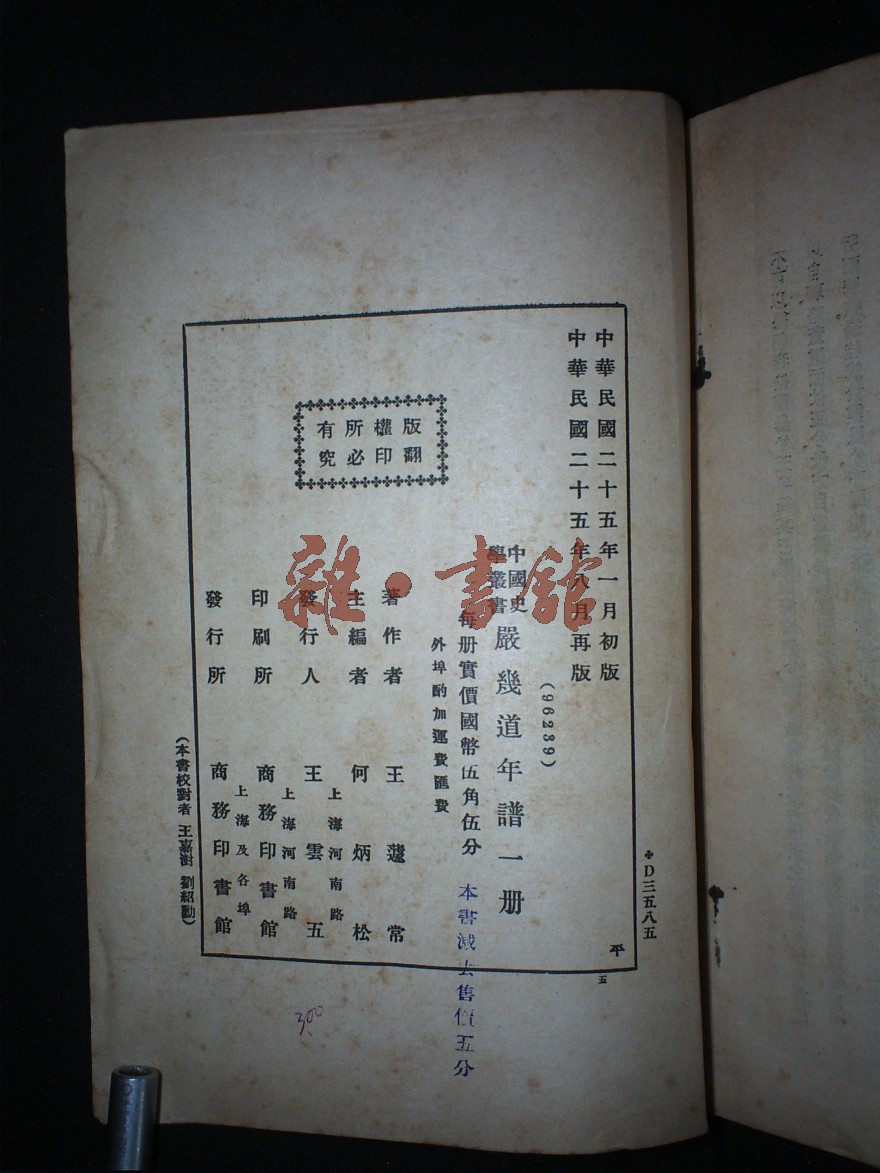 中華民國二十五年一月初版
中華民國二十五年八月再版
(96239)
中國史
學叢書
嚴幾道年譜一册
每册實價國幣伍角伍分
外埠酌加運費匯費
本書減去售價五分
著作者 王蘧常
主編者 何炳松
上海河南路
發行人 王雲五
上海河南路
印刷所 商務印書館
上海及各埠
發行所 商務印書館
版權所有
翻印必究
(本書校對者 王嘉澍 劉紹勛)
D三五八五
平
五
300
雜·書館